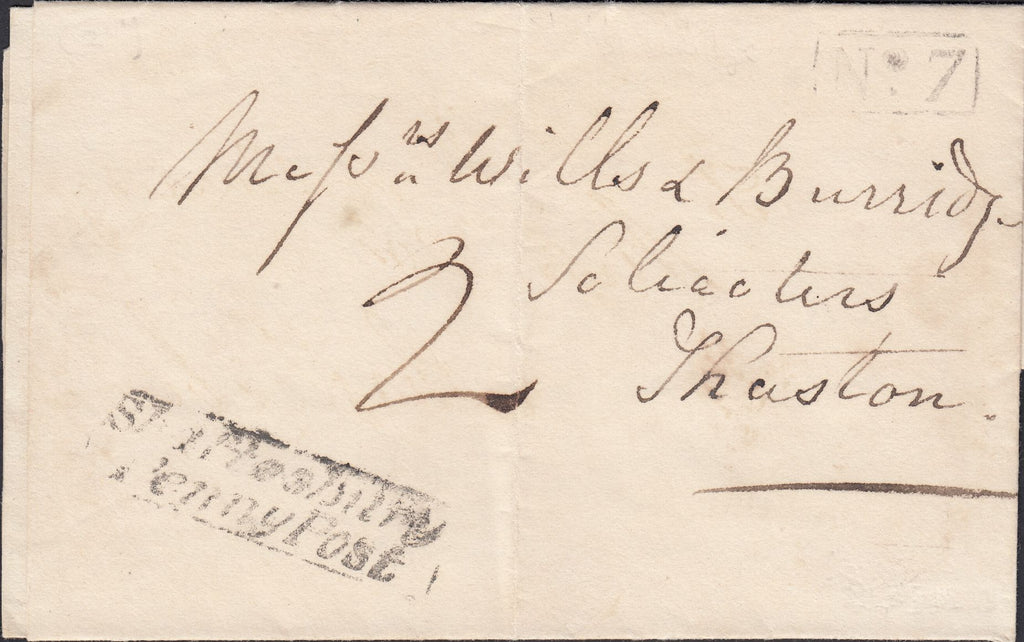 No. 7
Messrs Wills & Burridge
2
Soliciters
Shaston.
Shaftesbury
Penny Post